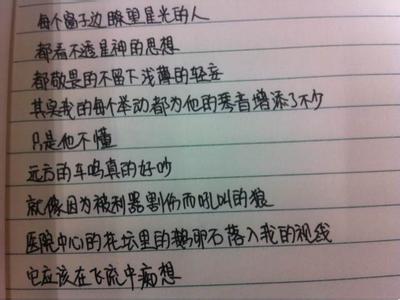 每个窗子边瞭望星光的人
都看不透星神的思想
都敬畏的不留下浅薄的轻妄
其实我的每个举动都为他的琴音增添了不少
只是他不懂
远方的车鸣真的好吵
就像因为被利器割伤而吼叫的狼
医院中心的花坛里的鹅卵石落入我的视线
它应该在飞流中痴想